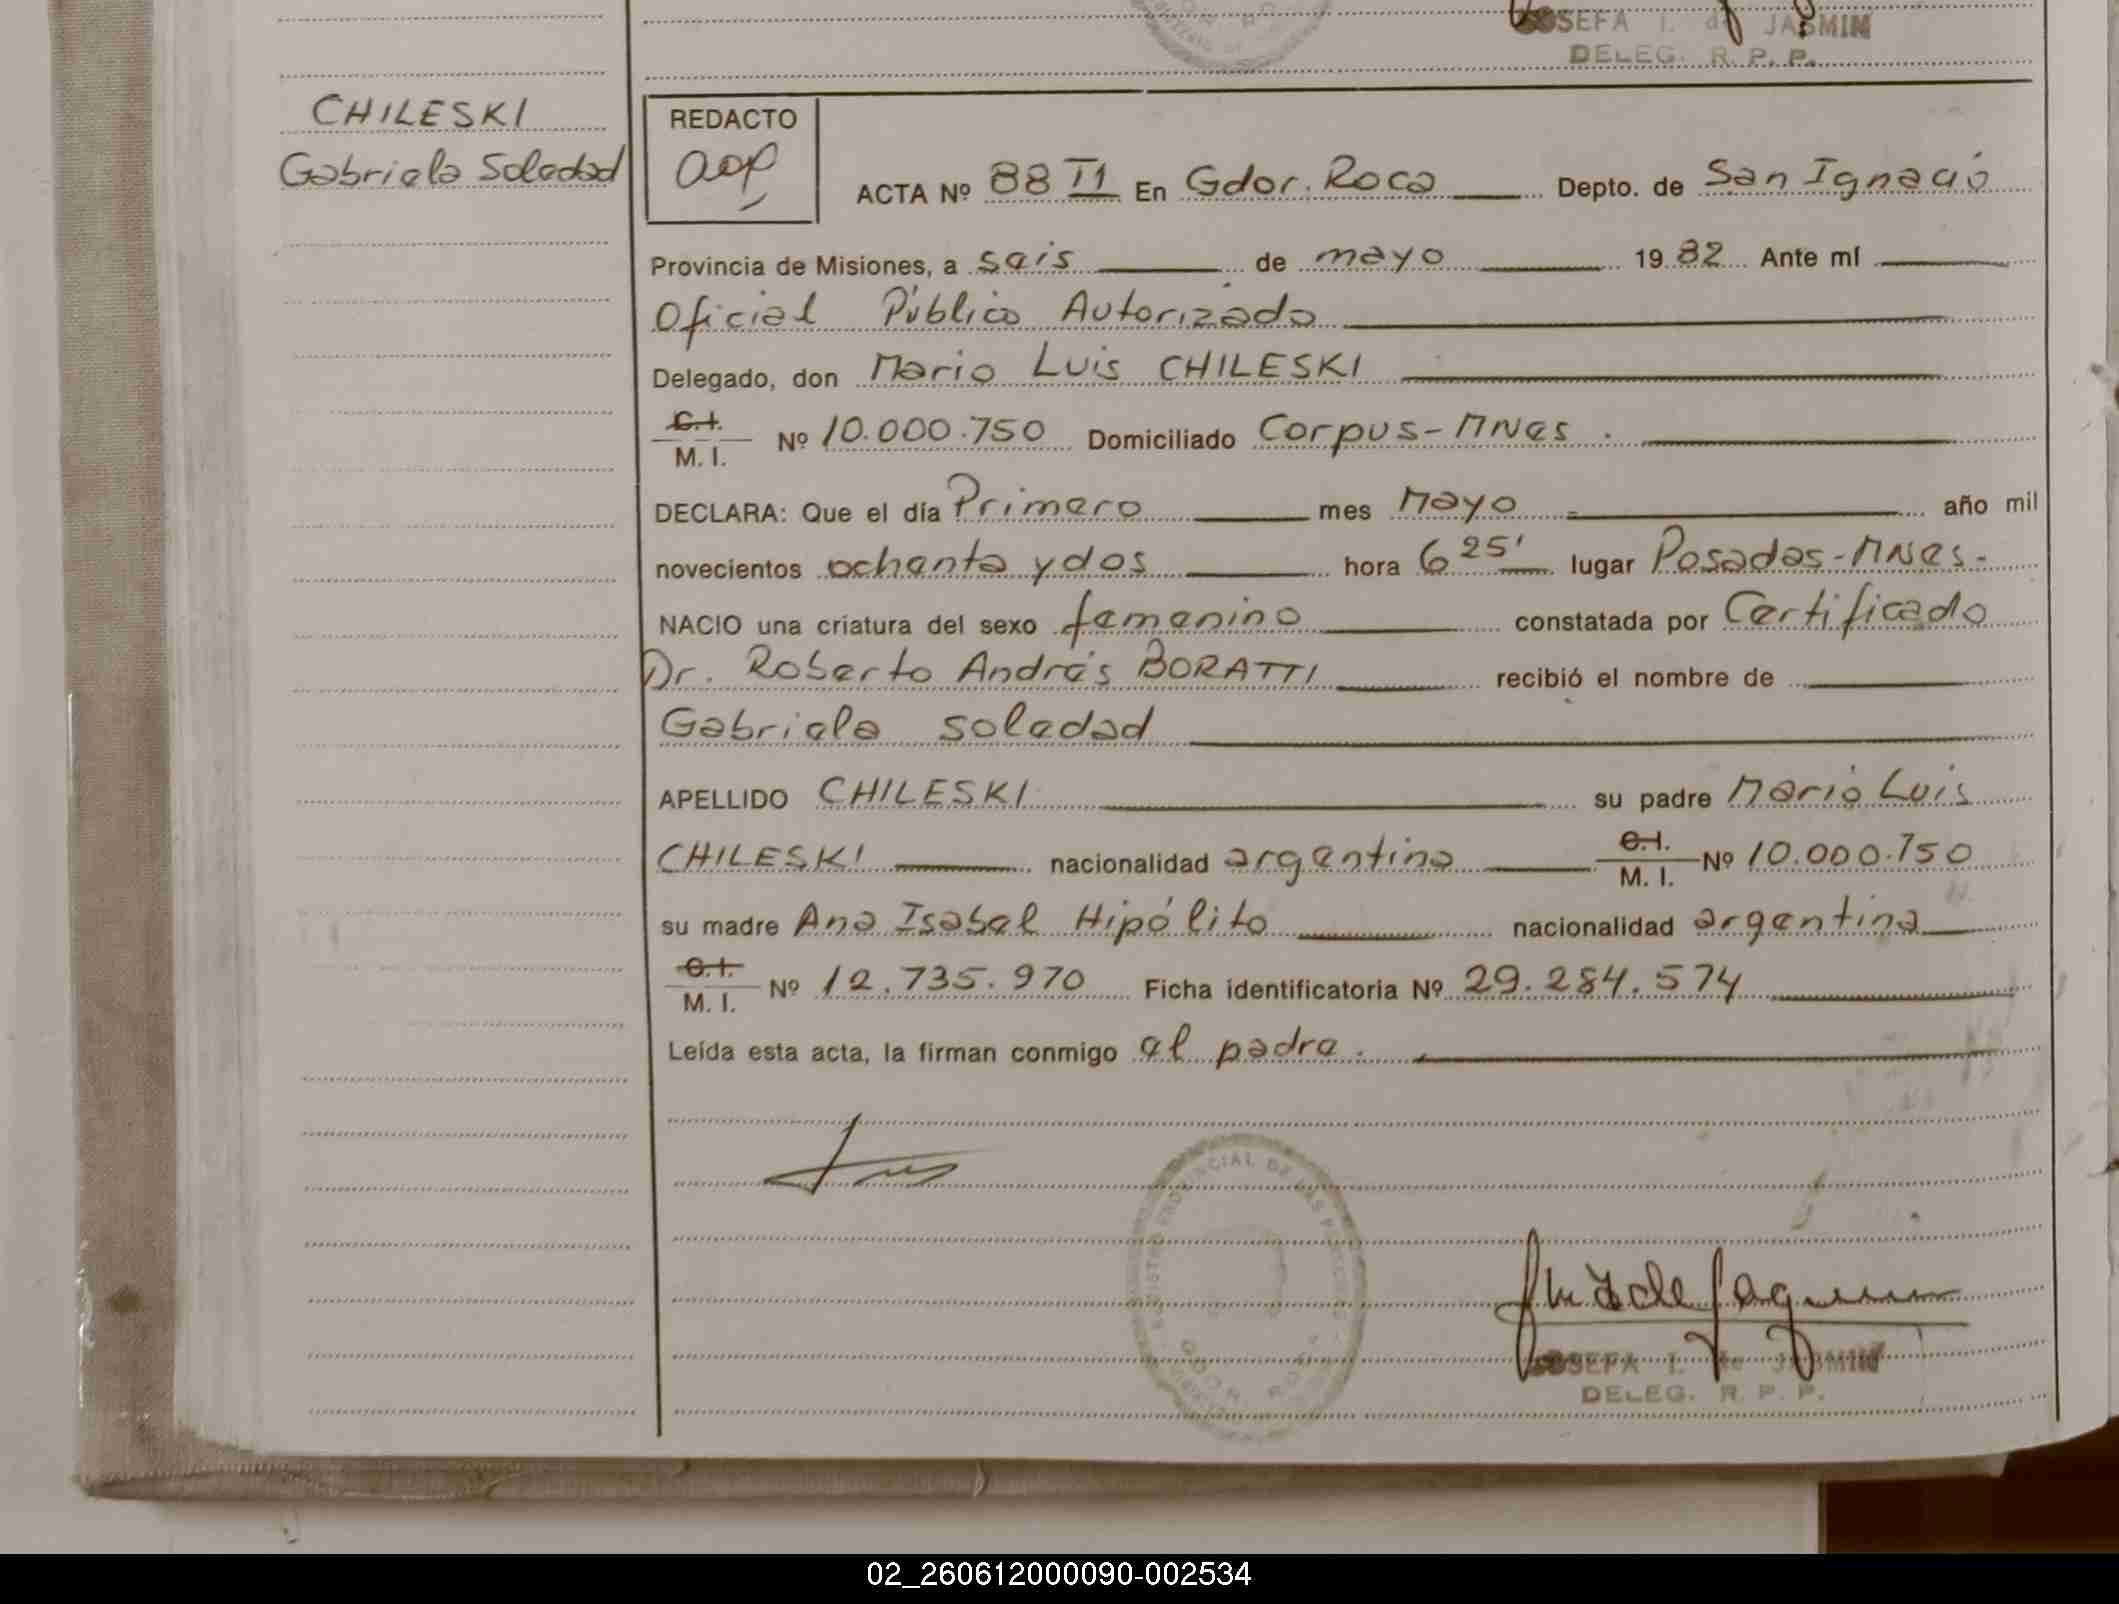 JOSEFA I. de JASMIN
DELEG. R. P. P.
CHILESKI
Gabriela Soledad
REDACTO
ACTA Nº 88 II En Gdor. Roca Depto. de San Ignacio
Provincia de Misiones, a seis de mayo 19 82 Ante mí
Oficial Público Autorizado
Delegado, don Mario Luis CHILESKI
C.I.
M. I. Nº 10.000.750 Domiciliado Corpus-Mnes.
DECLARA: Que el día Primero mes Mayo año mil
novecientos ochenta y dos hora 6 25' lugar Posadas-Mnes-
NACIO una criatura del sexo femenino constatada por Certificado
Dr. Roberto Andrés BORATTI recibió el nombre de
Gabriela Soledad
APELLIDO CHILESKI su padre Mario Luis
CHILESKI nacionalidad argentina C.I. M. I. Nº 10.000.750
su madre Ana Isabel Hipólito nacionalidad argentina
C.I.
M. I. Nº 12.735.970 Ficha identificatoria Nº 29.284.574
Leída esta acta, la firman conmigo el padre.
PROVINCIAL DE LAS PERSONAS
GDOR. ROCA
JOSEFA I. de JASMIN
DELEG. R. P. P.
02_260612000090-002534